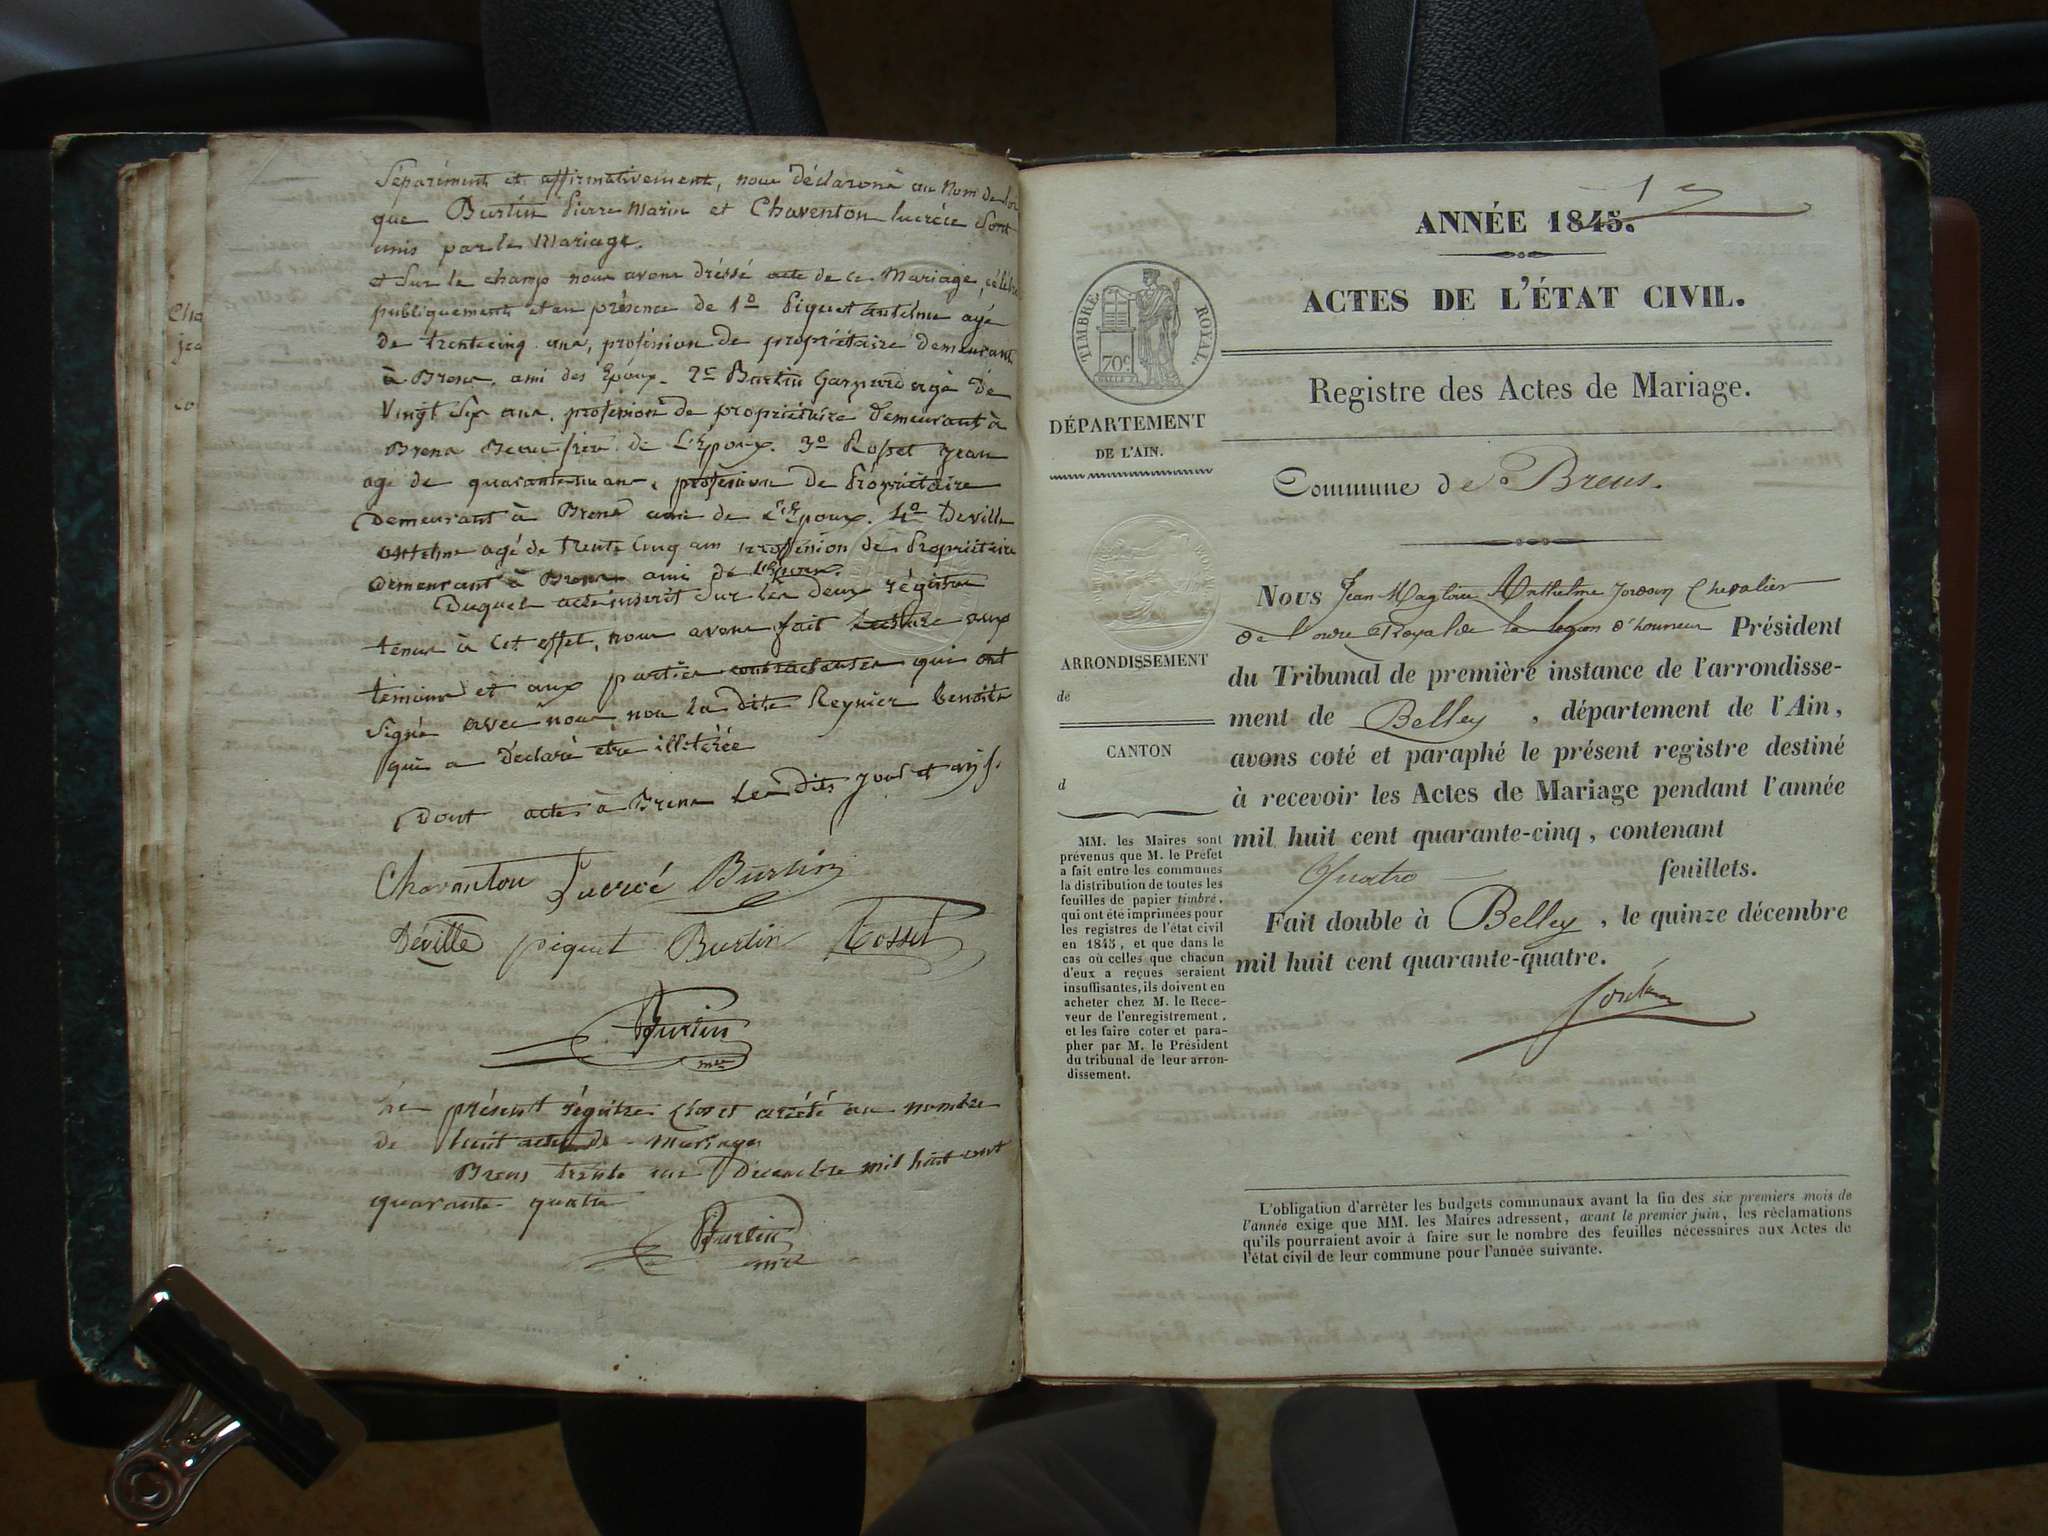 Séparément et affirmativement, nous déclarons au nom de loi
que Burtin Pierre Marin et Chaventon lucrèce Sont
unis par le Mariage.
et Sur le champ nous avons dréssé acte de ce Mariage, célébré
publiquement et en présence de 1º Piquet antelme agé
de trente cinq ans, profession de propriétaire demeurant
à Brens, ami des Epoux. 2º Burtin Gaspard agé de
vingt Six ans, profession de propriétaire demeurant à
Brens Beau frère de L'Epoux. 3º Rosset jean
agé de quarante un ans, profession de Propriétaire
Demeurant à Brens ami de L'Epoux. 4º Deville
antelme agé de trente cinq ans profession de Propriétaire
demeurant à Brens ami de L'Epoux.
Duquel acte inscrit Sur les deux régistres
tenus à cet effet, nous avons fait lecture aux
témoins et aux parties contractantes qui ont
Signé avec nous non la dite Reynier benoite
qui a Déclaré etre illitérée
Dont acte à Brens Les dits jour et an
Chavanton Lucrèce Burtin
Déville piquet Burtin Rosset
Burtin
mre
Le présent régistre clos et arrété au nombre
de huit actes de Mariages
Brens trente un Décembre mil huit cent
quarante quatre
Burtin
mre
1er
ANNÉE 1845.
ACTES DE L'ÉTAT CIVIL.
Registre des Actes de Mariage.
TIMBRE ROYAL
70c
DÉPARTEMENT
DE L'AIN.
Commune de Brens.
ARRONDISSEMENT
de
CANTON
d
MM. les Maires sont
prévenus que M. le Préfet
a fait entre les communes
la distribution de toutes les
feuilles de papier timbré,
qui ont été imprimées pour
les registres de l'état civil
en 1845, et que dans le
cas où celles que chacun
d'eux a reçues seraient
insuffisantes, ils doivent en
acheter chez M. le Rece-
veur de l'enregistrement,
et les faire coter et para-
pher par M. le Président
du tribunal de leur arron-
dissement.
Nous Jean Magloire Anthelme Jordan Chevalier
de l'ordre Royal de la legion d'honneur Président
du Tribunal de première instance de l'arrondisse-
ment de Belley, département de l'Ain,
avons coté et paraphé le présent registre destiné
à recevoir les Actes de Mariage pendant l'année
mil huit cent quarante-cinq, contenant
Quatre feuillets.
Fait double à Belley, le quinze décembre
mil huit cent quarante-quatre.
Jordan
L'obligation d'arrêter les budgets communaux avant la fin des six premiers mois de
l'année exige que MM. les Maires adressent, avant le premier juin, les réclamations
qu'ils pourraient avoir à faire sur le nombre des feuilles nécessaires aux Actes de
l'état civil de leur commune pour l'année suivante.